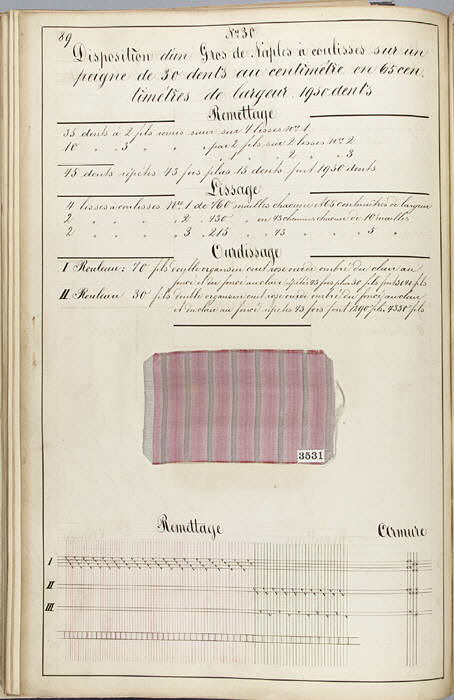 89
No. 30
Disposition d'un Gros de Naples à coulisses sur un
peigne de 30 dents au centimètre en 65 cen.
timètres de largeur. 1950 dents
Remettage
35 dents à 2 fils suivi sur 4 lisses No. 1
10 " " 3 " " par 2 fils sur 2 lisses No. 2
" " " 2 " " 3
45 dents répétés 43 fois plus 15 dents font 1950 dents
Lissage
4 lisses à coulisses No. 1 de 760 mailles chacune et 65 centimètres de largeur
2 " " " 2 " 430 " en 43 chacune de 10 mailles
2 " " " 3 " 215 " " 43 " " 5 "
Ourdissage
I Rouleau: 70 fils double organsin cuit rose ombré du clair au
foncé et du foncé au clair répétés 43 fois plus 30 fils
II Rouleau 30 fils double organsin cuit rose ombré du foncé au clair
et du clair au foncé répétés 43 fois font 1290 fils. 4330 fils
3531
Remettage
Armure
I
II
III